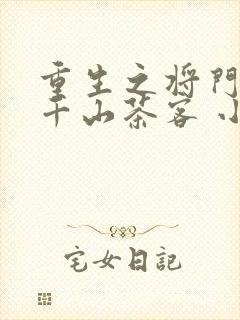 重生之将门
千山茶客 小
宅女日記